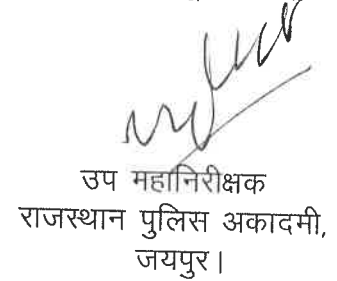 उप महानिरीक्षक
राजस्थान पुलिस अकादमी,
जयपुर।